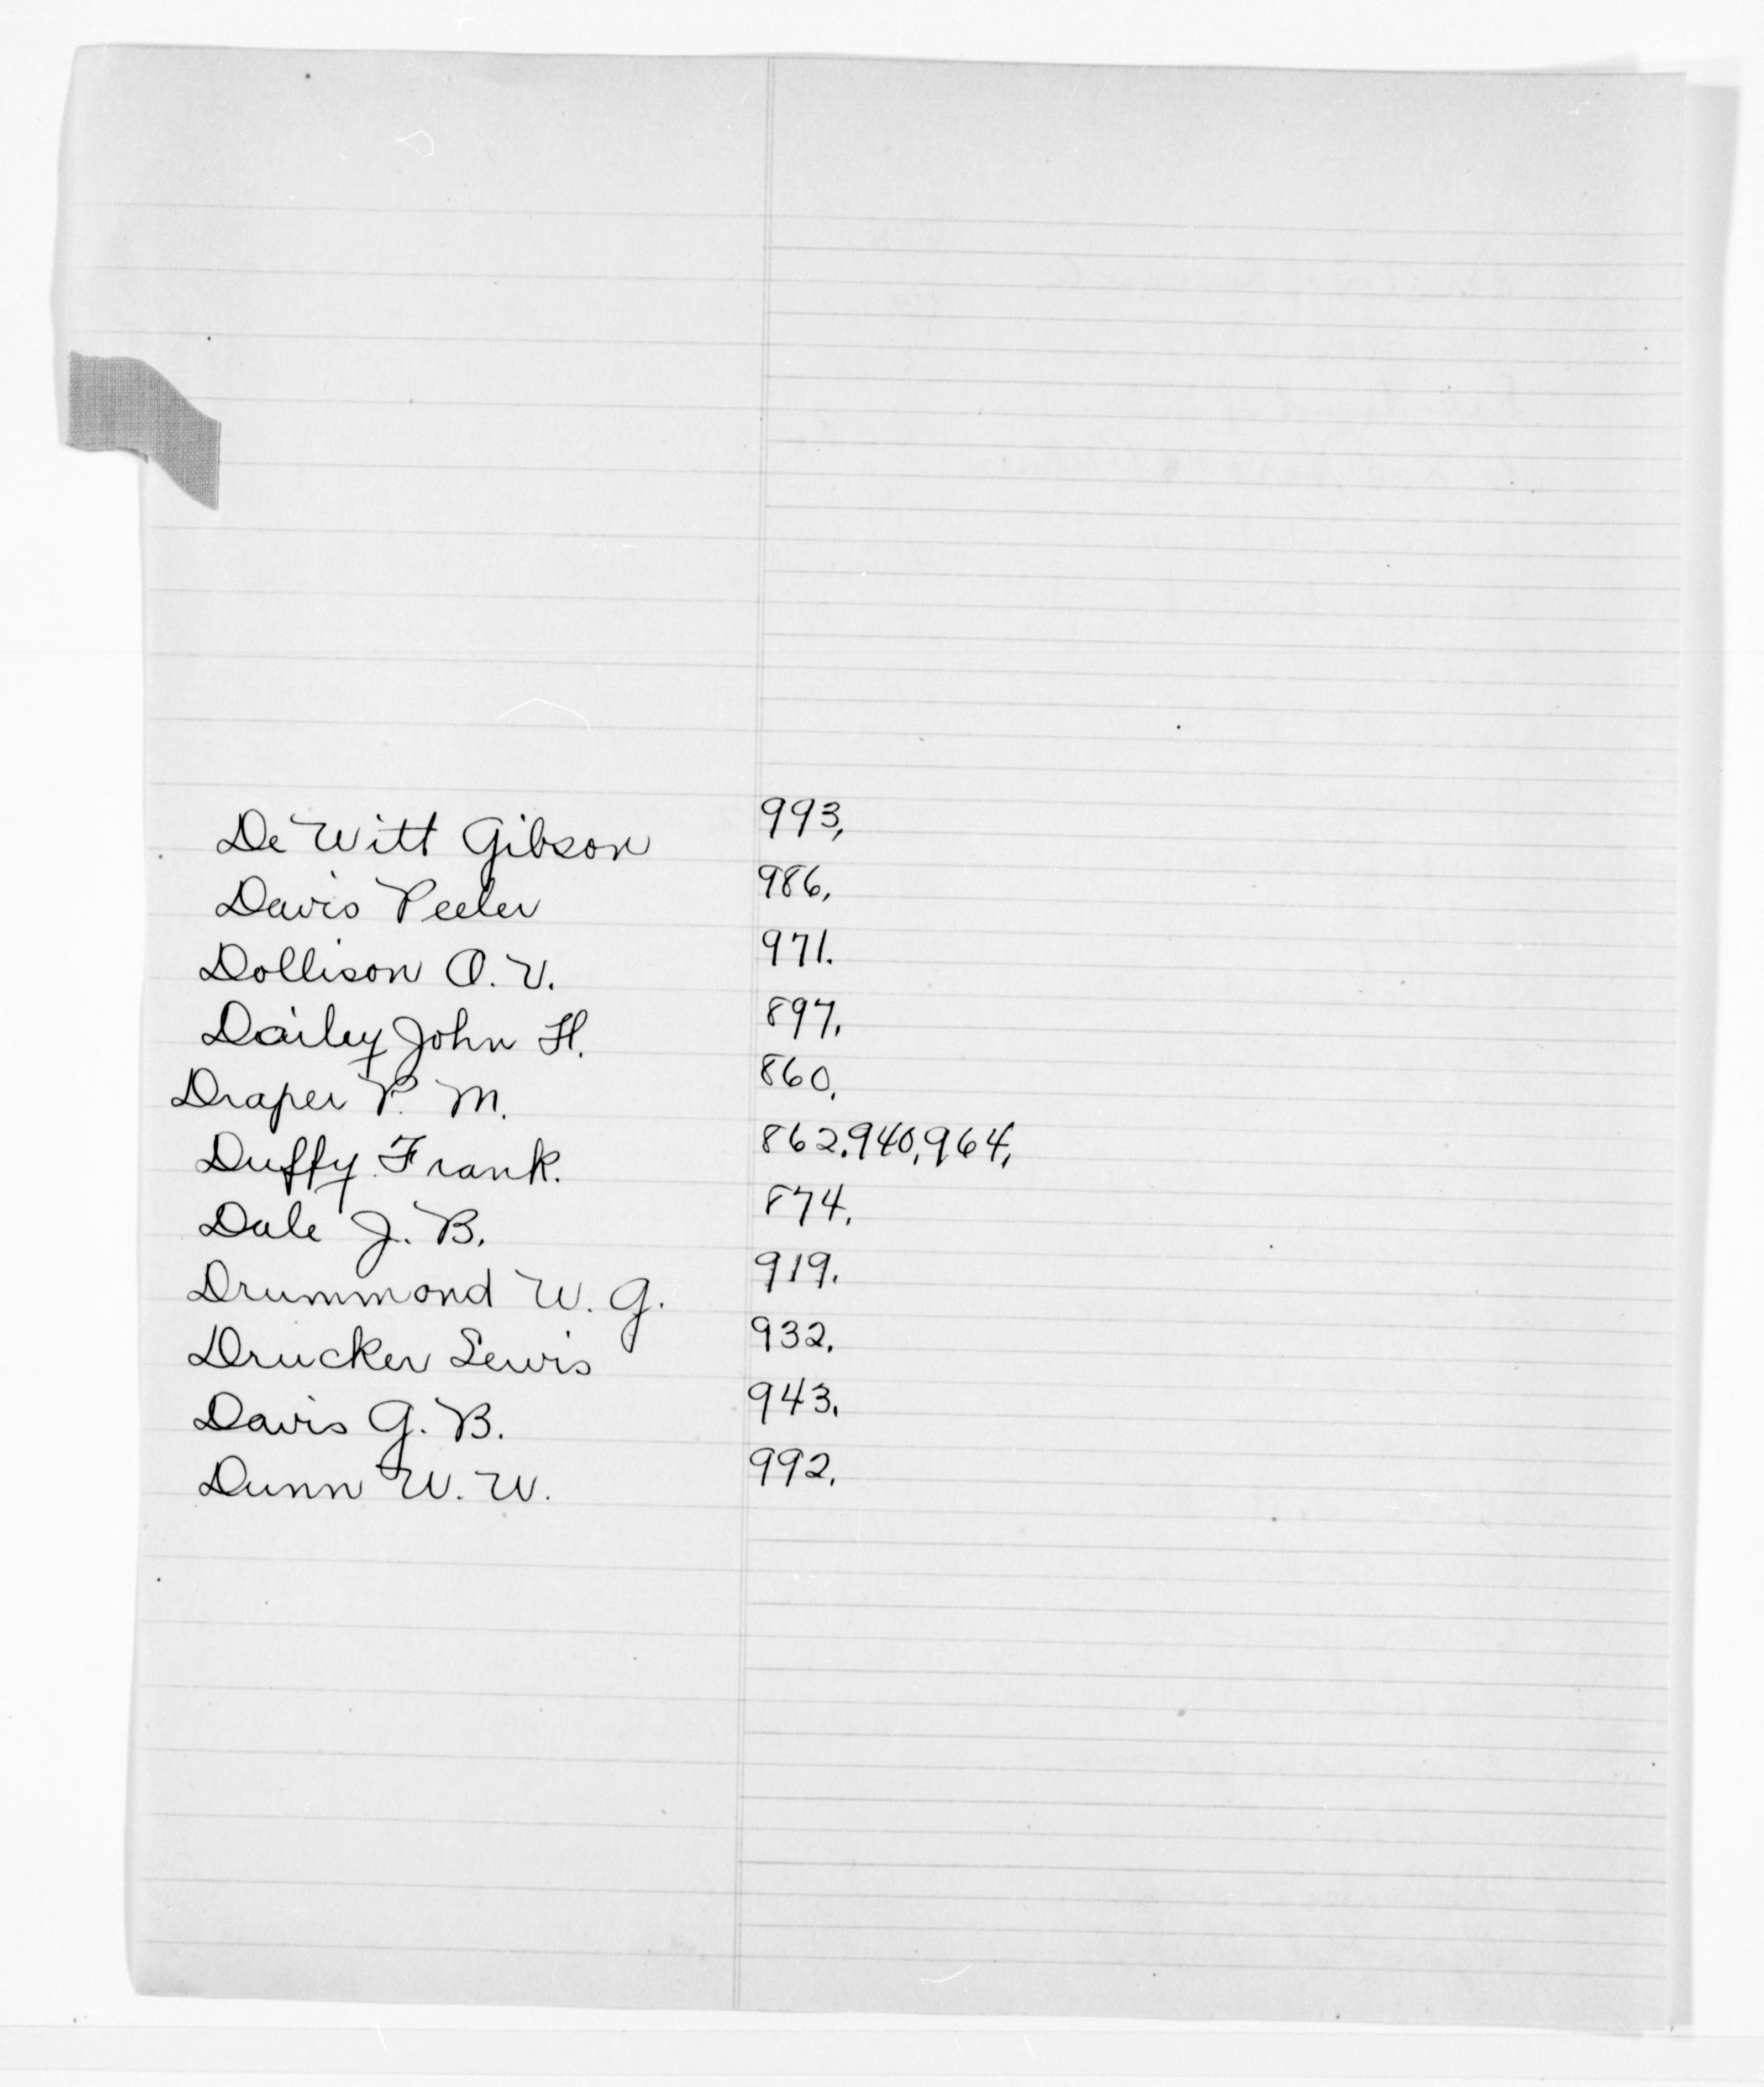 De Witt Gibson 993,
Davis Peeler 986,
Dollison O. V. 971.
Dailey John H. 897,
Draper P. M. 860,
Duffy Frank. 862,940,964,
Dale J. B. 874,
Drummond W. G. 919.
Drucker Lewis 932,
Davis G. B. 943,
Dunn W. W. 992,